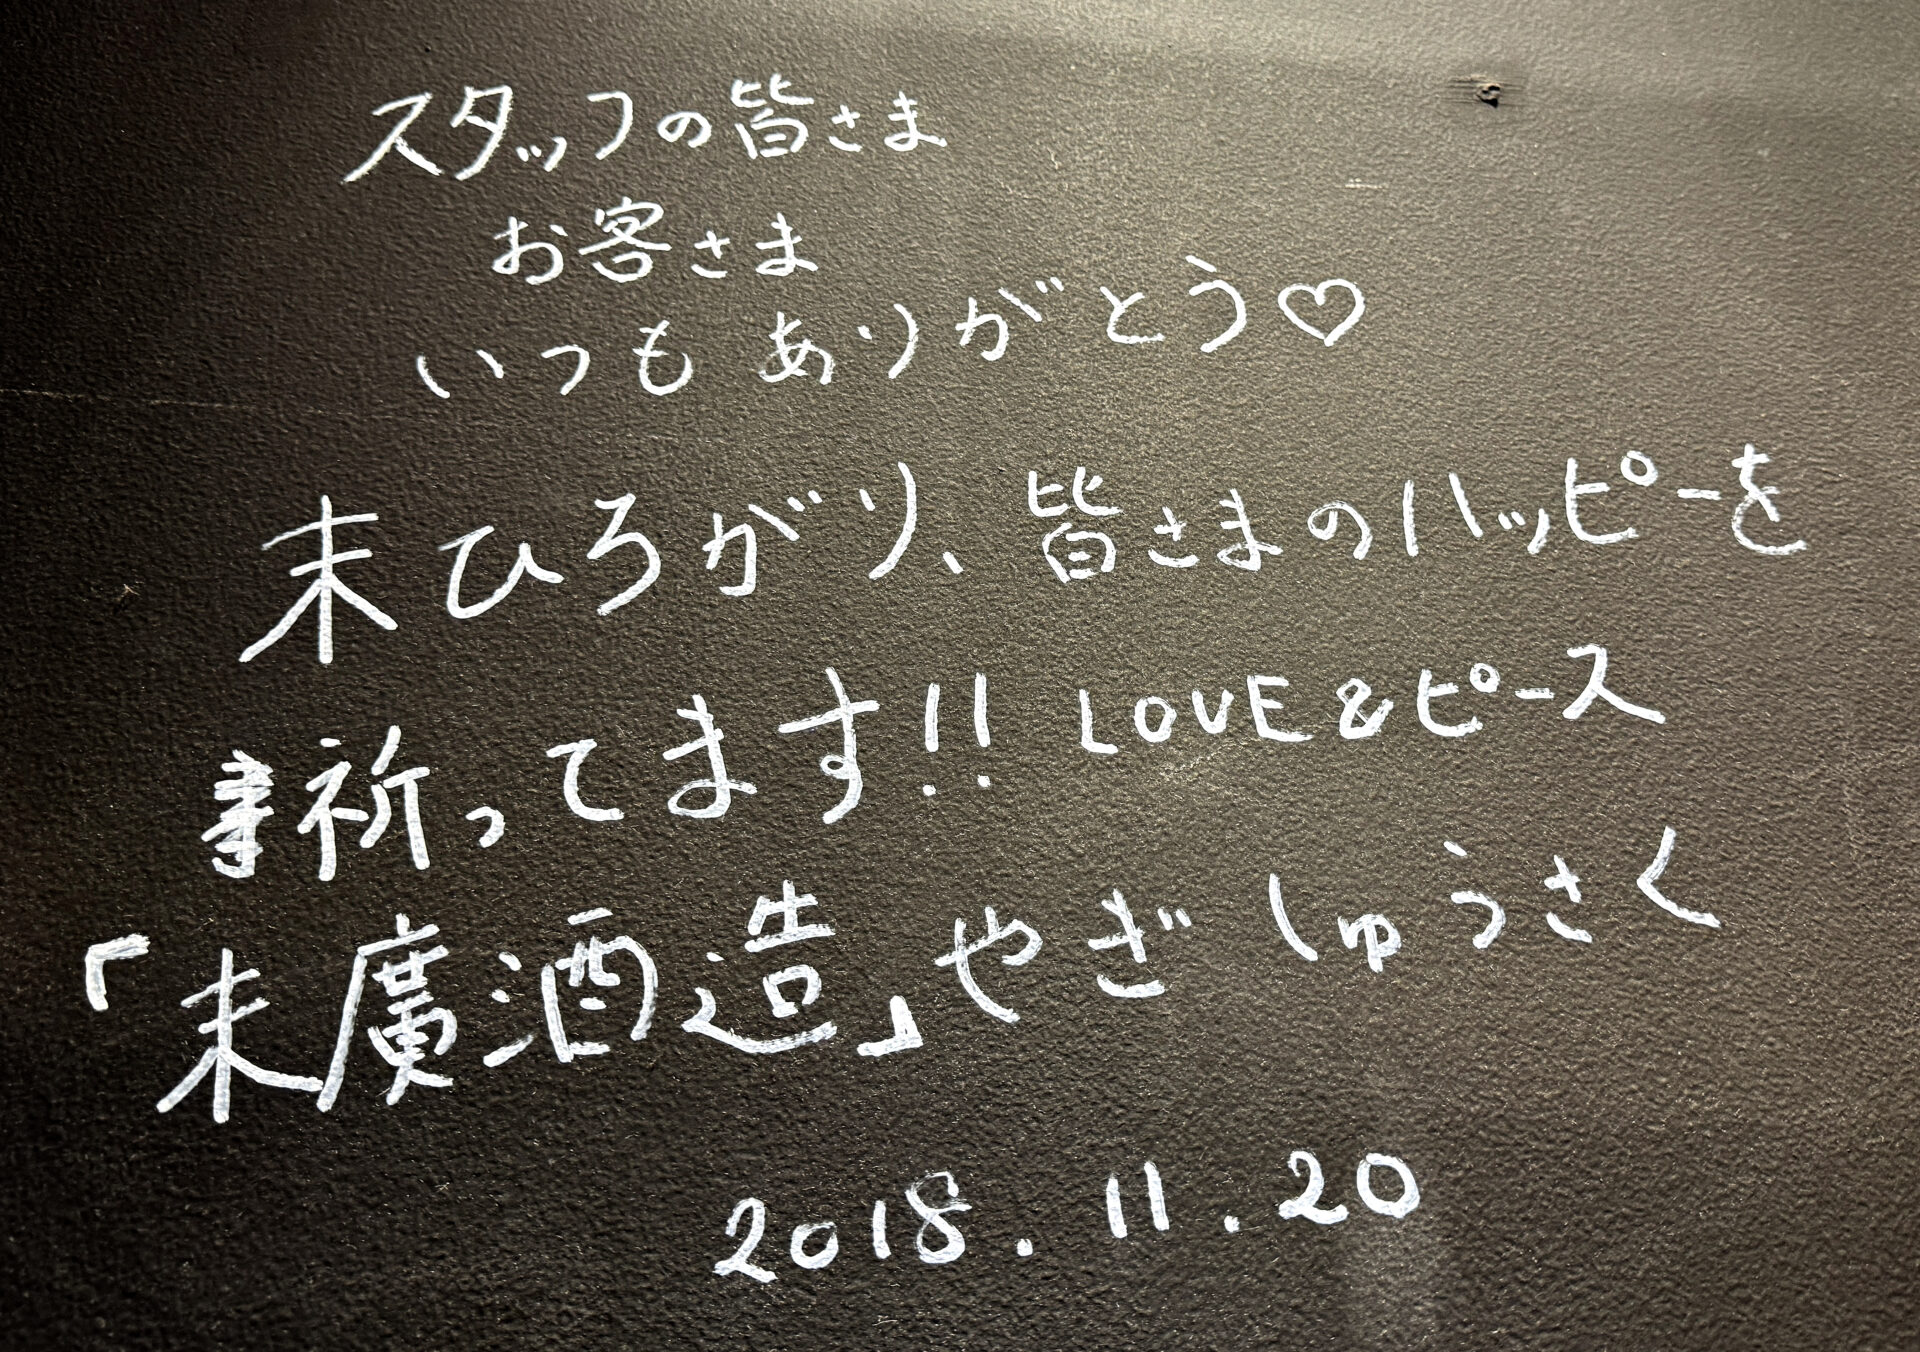 スタッフの皆さま
お客さま
いつもありがとう♡
末ひろがり、皆さまのハッピーを
祈ってます!! LOVE&ピース
「末廣酒造」やぎ しゅうさく
2018.11.20